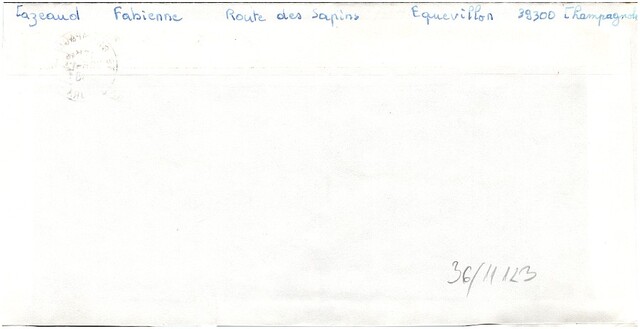 Cazeaud Fabienne Route des Sapins Equevillon 39300 Champagnole
36/11123